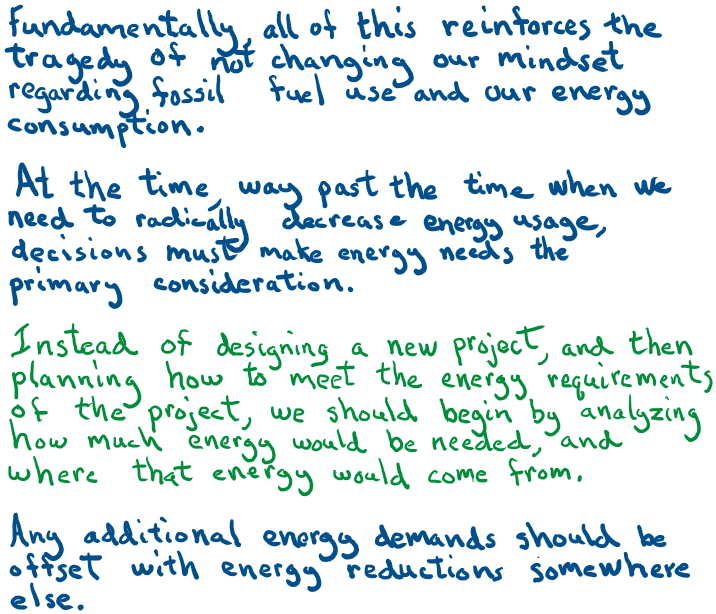 Fundamentally, all of this reinforces the
tragedy of not changing our mindset
regarding fossil fuel use and our energy
consumption.
At the time, way past the time when we
need to radically decrease energy usage,
decisions must make energy needs the
primary consideration.
Instead of designing a new project, and then
planning how to meet the energy requirements
of the project, we should begin by analyzing
how much energy would be needed, and
where that energy would come from.
Any additional energy demands should be
offset with energy reductions somewhere
else.